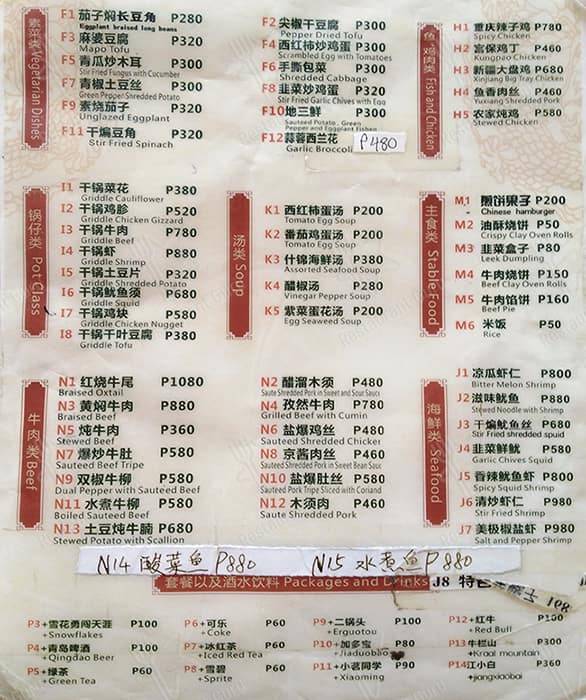 素菜类 Vegetarian Dishes
F1 茄子焖长豆角 P280
Eggplant braised long beans
F3 麻婆豆腐 P320
Mapo Tofu
F5 青瓜炒木耳 P300
Stir Fried Fungus with Cucumber
F7 青椒土豆丝 P300
Green Pepper Shredded Potato
F9 素烧茄子 P320
Unglazed Eggplant
F11 干煸豆角 P320
Stir Fried Spinach
F2 尖椒干豆腐 P300
Pepper Dried Tofu
F4 西红柿炒鸡蛋 P300
Scrambled Egg with Tomatoes
F6 手撕包菜 P300
Shredded Cabbage
F8 韭菜炒鸡蛋 P320
Stir Fried Garlic Chives with Egg
F10 地三鲜 P300
Sauteed Potato, Green
Pepper and Eggplant Fishen
F12 蒜蓉西兰花 P480
Garlic Broccoli
鱼,鸡肉类 Fish and Chicken
H1 重庆辣子鸡 P780
Spicy Chicken
H2 宫保鸡丁 P460
Kungpao Chicken
H3 新疆大盘鸡 P680
Xinjiang Big Tray Chicken
H4 鱼香肉丝 P460
Yuxiang Shredded Pork
H5 农家炖鸡 P580
Stewed Chicken
锅仔类 Pot Class
I1 干锅菜花 P380
Griddle Cauliflower
I2 干锅鸡胗 P520
Griddle Chicken Gizzard
I3 干锅牛肉 P780
Griddle Beef
I4 干锅虾 P880
Griddle Shrimp
I5 干锅土豆片 P320
Griddle Shredded Potato
I6 干锅鱿鱼须 P680
Griddle Squid
I7 干锅鸡块 P580
Griddle Chicken Nugget
I8 干锅干叶豆腐 P380
Griddle Tofu
汤类 Soup
K1 西红柿蛋汤 P200
Tomato Egg Soup
K2 番茄鸡蛋汤 P200
Tomato Egg Soup
K3 什锦海鲜汤 P380
Assorted Seafood Soup
K4 醋椒汤 P280
Vinegar Pepper Soup
K5 紫菜蛋花汤 P200
Egg Seaweed Soup
主食类 Stable Food
M1 煎饼果子 P200
Chinese hamburger
M2 油酥烧饼 P50
Crispy Clay Oven Rolls
M3 韭菜盒子 P80
Leek Dumpling
M4 牛肉烧饼 P150
Beef Clay Oven Rolls
M5 牛肉馅饼 P160
Beef Pie
M6 米饭 P50
Rice
牛肉类 Beef
N1 红烧牛尾 P1080
Braised Oxtail
N3 黄焖牛肉 P880
Braised Beef
N5 炖牛肉 P360
Stewed Beef
N7 爆炒牛肚 P580
Sauteed Beef Tripe
N9 双椒牛柳 P580
Dual Pepper with Sauteed Beef
N11 水煮牛柳 P580
Boiled Sauteed Beef
N13 土豆炖牛腩 P680
Stewed Potato with Scallion
N2 醋溜木须 P480
Saute Shredded Pork in Sweet and Sour Sauce
N4 孜然牛肉 P780
Grilled Beef with Cumin
N6 盐爆鸡丝 P480
Sauteed Shredded Chicken
N8 京酱肉丝 P460
Sauteed Shredded Pork in Sweet Bean Sauce
N10 盐爆肚丝 P580
Sauteed Pork Tripe Sliced with Coriand
N12 木须肉 P460
Saute Shredded Pork
海鲜类 Seafood
J1 凉瓜虾仁 P800
Bitter Melon Shrimp
J2 滋味鱿鱼 P880
Stewed Noodle with Shrimp
J3 干煸鱿鱼丝 P680
Stir Fried shredded spuid
J4 韭菜鲜鱿 P580
Garlic Chives Squid
J5 香辣鱿鱼虾 P800
Spicy Squid Shrimp
J6 清炒虾仁 P980
Stir Fried Shrimp
J7 美极椒盐虾 P980
Salt and Pepper Shrimp
N14 酸菜鱼 P880 N15 水煮鱼 P880
套餐以及酒水饮料 Packages and Drinks J8 特色
P3 +雪花勇闯天涯 P100
+Snowflakes
P4 +青岛啤酒 P100
+Qingdao Beer
P5 +绿茶 P60
+Green Tea
P6 +可乐 P60
+Coke
P7 +冰红茶 P60
+Iced Red Tea
P8 +雪碧 P60
+Sprite
P9 +二锅头 P100
+Erguotou
P10 +加多宝 P80
+Jiaduobao
P11 +小茗同学 P90
+Xiaoming
P12 +红牛 P100
+Red Bull
P13 牛栏山 P300
+Kraal mountain
P14 江小白 P360
+jiangxiaobai